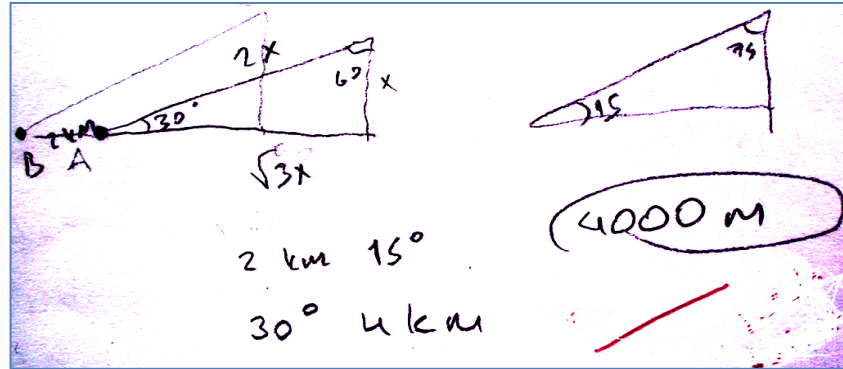 2x
60
x
30°
2 km
B A
√3x
75
15
4000 m
2 km 15°
30° 4 km